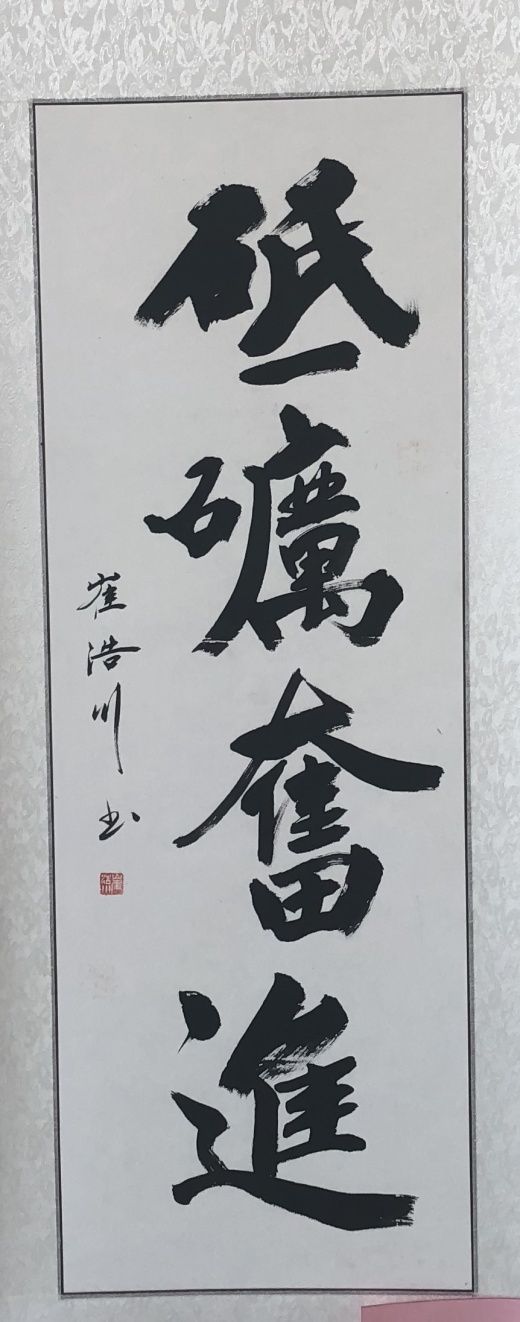 砥礪奮進
崔浩川书